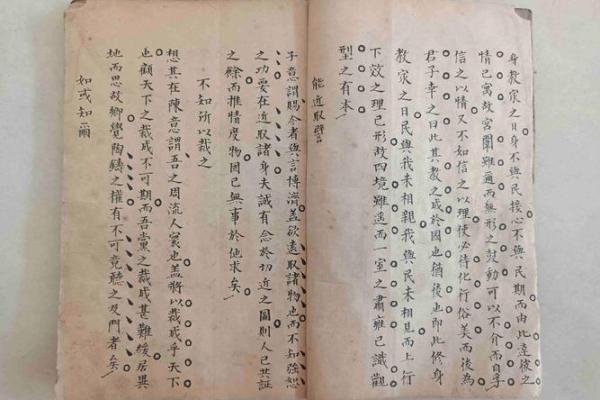 身教家之日身不與民接心不與民期而由此達彼之
情已寓故宮闈雖邇而無形之鼓動可以不介而自孚
信之以情又不如信之以理使必待化行俗美而後為
君子幸之曰此其教之成於國也猶後也即此修身
教家之日民與我未相親我與民未相見而上行
下效之理已形故四境雖遥而一室之肅雍已識觀
型之有本
能近取譬
子意謂賜今者與言博濟蓋欲遠取諸物也而不知強恕
之功要在近取諸身夫誠有念於切近之圖則人己共証
之餘而推情度物固已無事於他求矣
不知所以裁之
想其在陳意謂吾之周流人寰也蓋將以裁成乎天下
也顧天下之裁成不可期而吾黨之裁成甚難緩居異
地而思故鄉覺陶鑄之權有不可竟聽之及門者矣
如或知爾